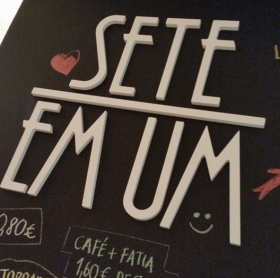 SETE
EM UM
0,80€
CAFÉ + FATIA
1,60€